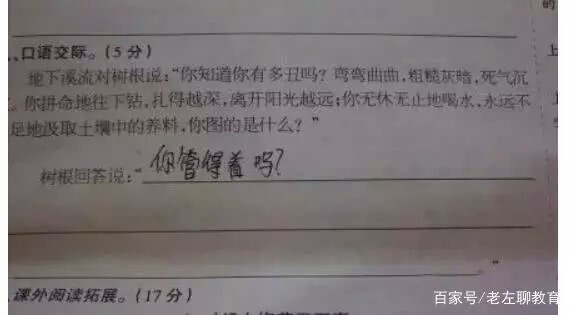 、口语交际。(5分)
地下溪流对树根说:“你知道你有多丑吗?弯弯曲曲,粗糙灰暗,死气沉
。你拼命地往下钻,扎得越深,离开阳光越远;你无休无止地喝水,永远不
足地汲取土壤中的养料,你图的是什么?”
树根回答说:“你管得着吗?
。”
、课外阅读拓展。(17分)
百家号/老左聊教育
的
上